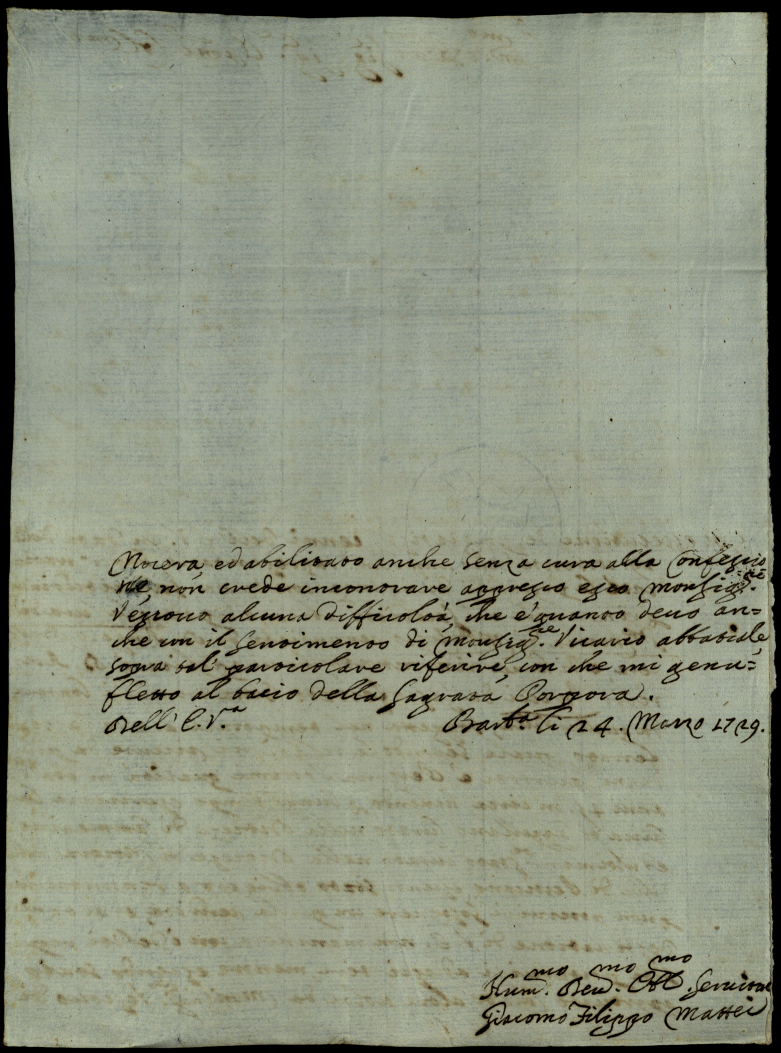 Nocera, ed abilitato anche senza cura alla Confessio
ne, non crede incontrare appresso esso Monsig.re
Vescovo alcuna difficoltà, che è quanto devo an=
che con il sentimento di Monsig.re Vicario abbatiale
sopra tal particolare riferire, con che mi genu=
fletto al bacio della Sagrata Porpora.
Dell' E. V.ra Barb.a li 24. Marzo 1729.
Hum.mo Dev.mo Obb.mo Servitore
Giacomo Filippo Mattei